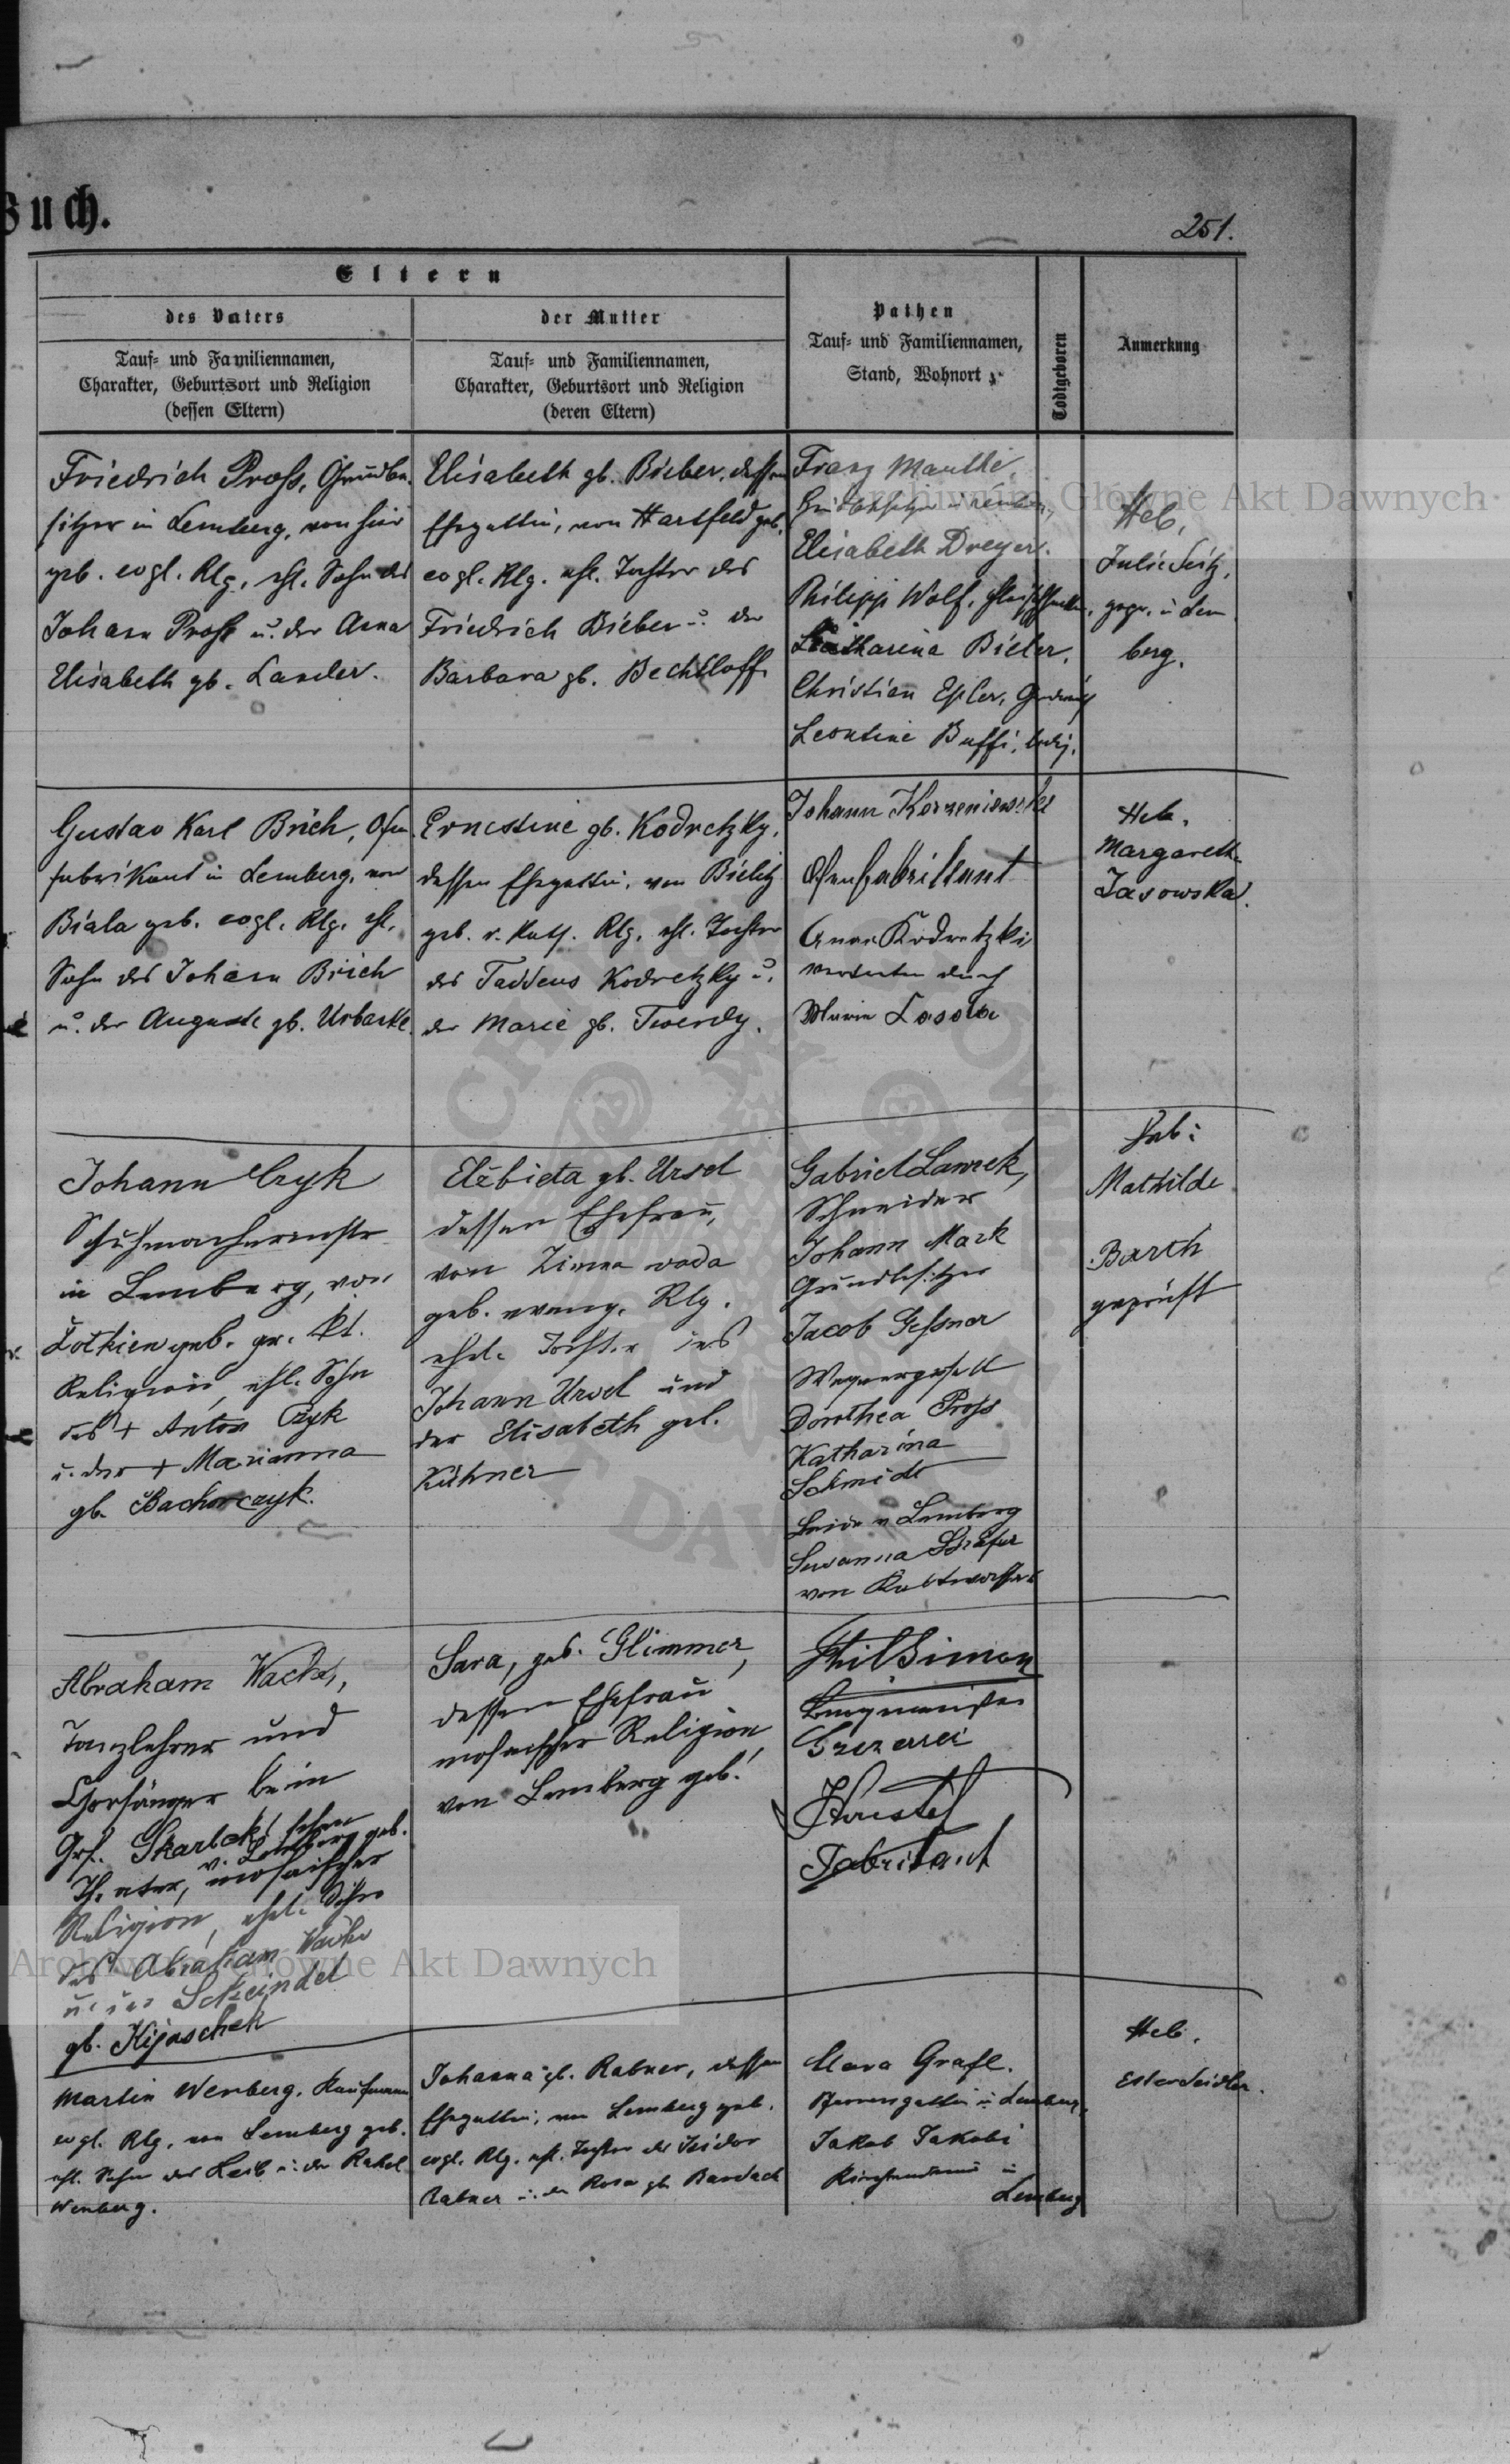 Buch.
251.
Eltern
des Vaters
Tauf- und Familiennamen,
Charakter, Geburtsort und Religion
(dessen Eltern)
der Mutter
Tauf- und Familiennamen,
Charakter, Geburtsort und Religion
(deren Eltern)
Pathen
Tauf- und Familiennamen,
Stand, Wohnort
Todtgeboren
Anmerkung
Friedrich Pross, Grundbe-
sitzer in Lemberg, von hier
geb. evgl. Rlg., ehl. Sohn des
Johann Pross u. der Anna
Elisabeth gb. Lander.
Elisabeth gb. Bieber, dessen
Ehegattin, von Hartfeld geb.
evgl. Rlg. ehl. Tochter des
Friedrich Bieber u. der
Barbara gb. Bechtloff.
Franz Manthé,
Elisabeth Dreyer.
Philipp Wolf,
Katharina Bieler.
Christian Epler,
Leontine Buffi, ledig.
Heb.
Julie Seitz,
gepr. in Lem
berg.
Gustav Karl Brich, Ofen
fabrikant in Lemberg, von
Biala geb. evgl. Rlg. ehl.
Sohn des Johann Brich
u. der Auguste gb. Urbanke.
Ernestine gb. Kodretzky,
dessen Ehegattin, von Bielitz
geb. r. kath. Rlg. ehl. Tochter
des Taddeus Kodretzky u.
der Marie gb. Twerdy.
Johann Korzeniewski
Ofenfabrikant
Anna Kodretzki
vertreten durch
Maria Lasota
Heb.
Margareth
Jasowska.
Johann Czyk
Schuhmachermstr
in Lemberg, von
Żołkiew geb. gr. kt.
Religion, ehl. Sohn
des + Anton Czyk
u. der + Marianna
gb. Bachorczyk.
Elżbieta gb. Ursel
dessen Ehefrau,
von Zimna woda
geb. evang. Rlg.
ehel. Tochter des
Johann Ursel und
der Elisabeth geb.
Kühner
Gabriel Lawrek,
Schneider
Johann Mark
Grundbesitzer
Jacob Gessner
Wagnergesell
Dorothea Pross
Katharina
Schmidt
beide v. Lemberg
Susanna Schäfer
von Kaltwasser
Heb:
Mathilde
Barth
geprüft
Abraham Wacks,
Tanzlehrer und
Chorsänger beim
Grf. Skarbek'schen
v. Lemberg geb.
Theater, mosaischer
Religion, ehel. Sohn
des Abraham Wacks
u. der Scheindel
gb. Kijaschek
Sara, geb. Glimmer,
dessen Ehefrau
mosaischer Religion,
von Lemberg geb.
Phil Simon
Fabrikant
Martin Wenberg, Kaufmann
evgl. Rlg., von Lemberg geb.
ehl. Sohn des Leib u. der Rahel
Wenberg.
Johanna gb. Rabner, dessen
Ehegattin, von Lemberg geb.
evgl. Rlg. ehl. Tochter des Isidor
Rabner u. der Rosa gb. Bardach
Clara Grafl.
Pfarrersgattin in Lemberg,
Jakob Jakobi
in
Lemberg
Heb.
Ester Seidler.
Archiwum Główne Akt Dawnych
Archiwum Główne Akt Dawnych